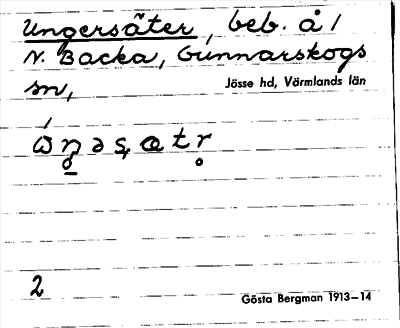 Ungersäter, beb. å /
N. Backa, Gunnarskogs
sn,
Jösse hd, Värmlands län
2
Gösta Bergman 1913–14